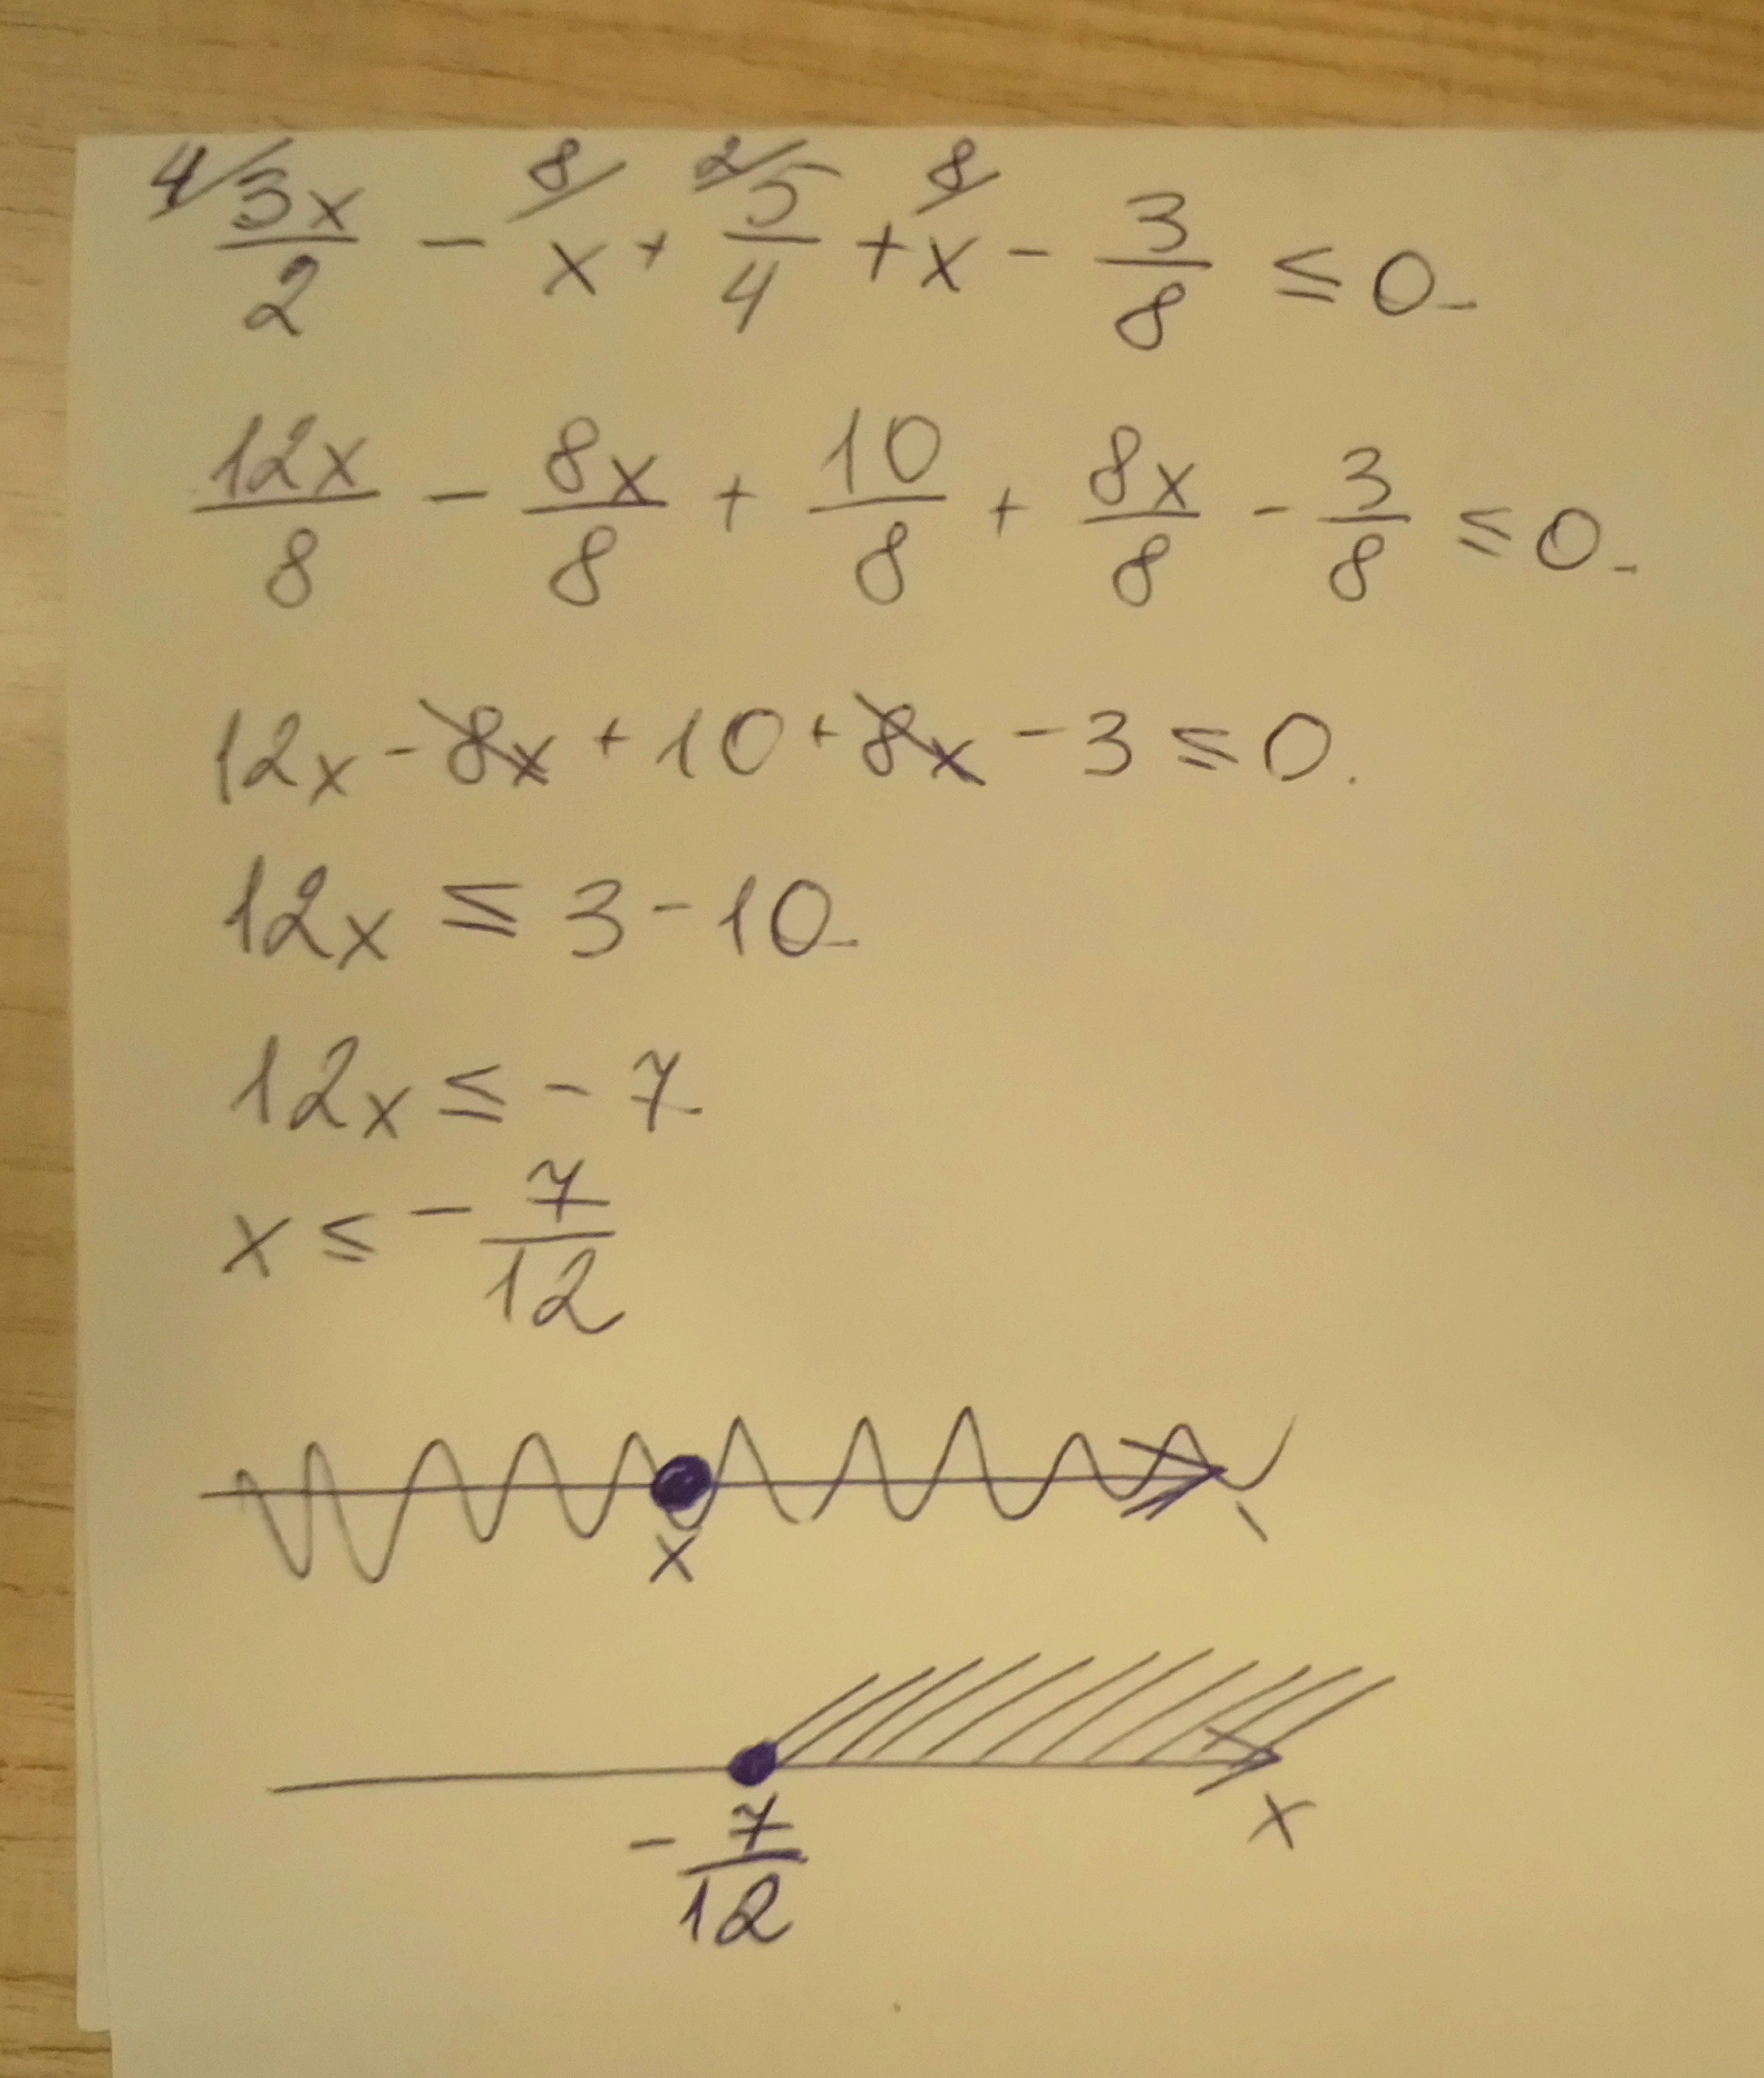 4/ 8/ 2/ 8/
3x/2 - x + 5/4 + x - 3/8 ≤ 0.
12x/8 - 8x/8 + 10/8 + 8x/8 - 3/8 ≤ 0.
12x - 8x + 10 + 8x - 3 ≤ 0.
12x ≤ 3 - 10.
12x ≤ - 7.
x ≤ - 7/12
x
x
- 7/12